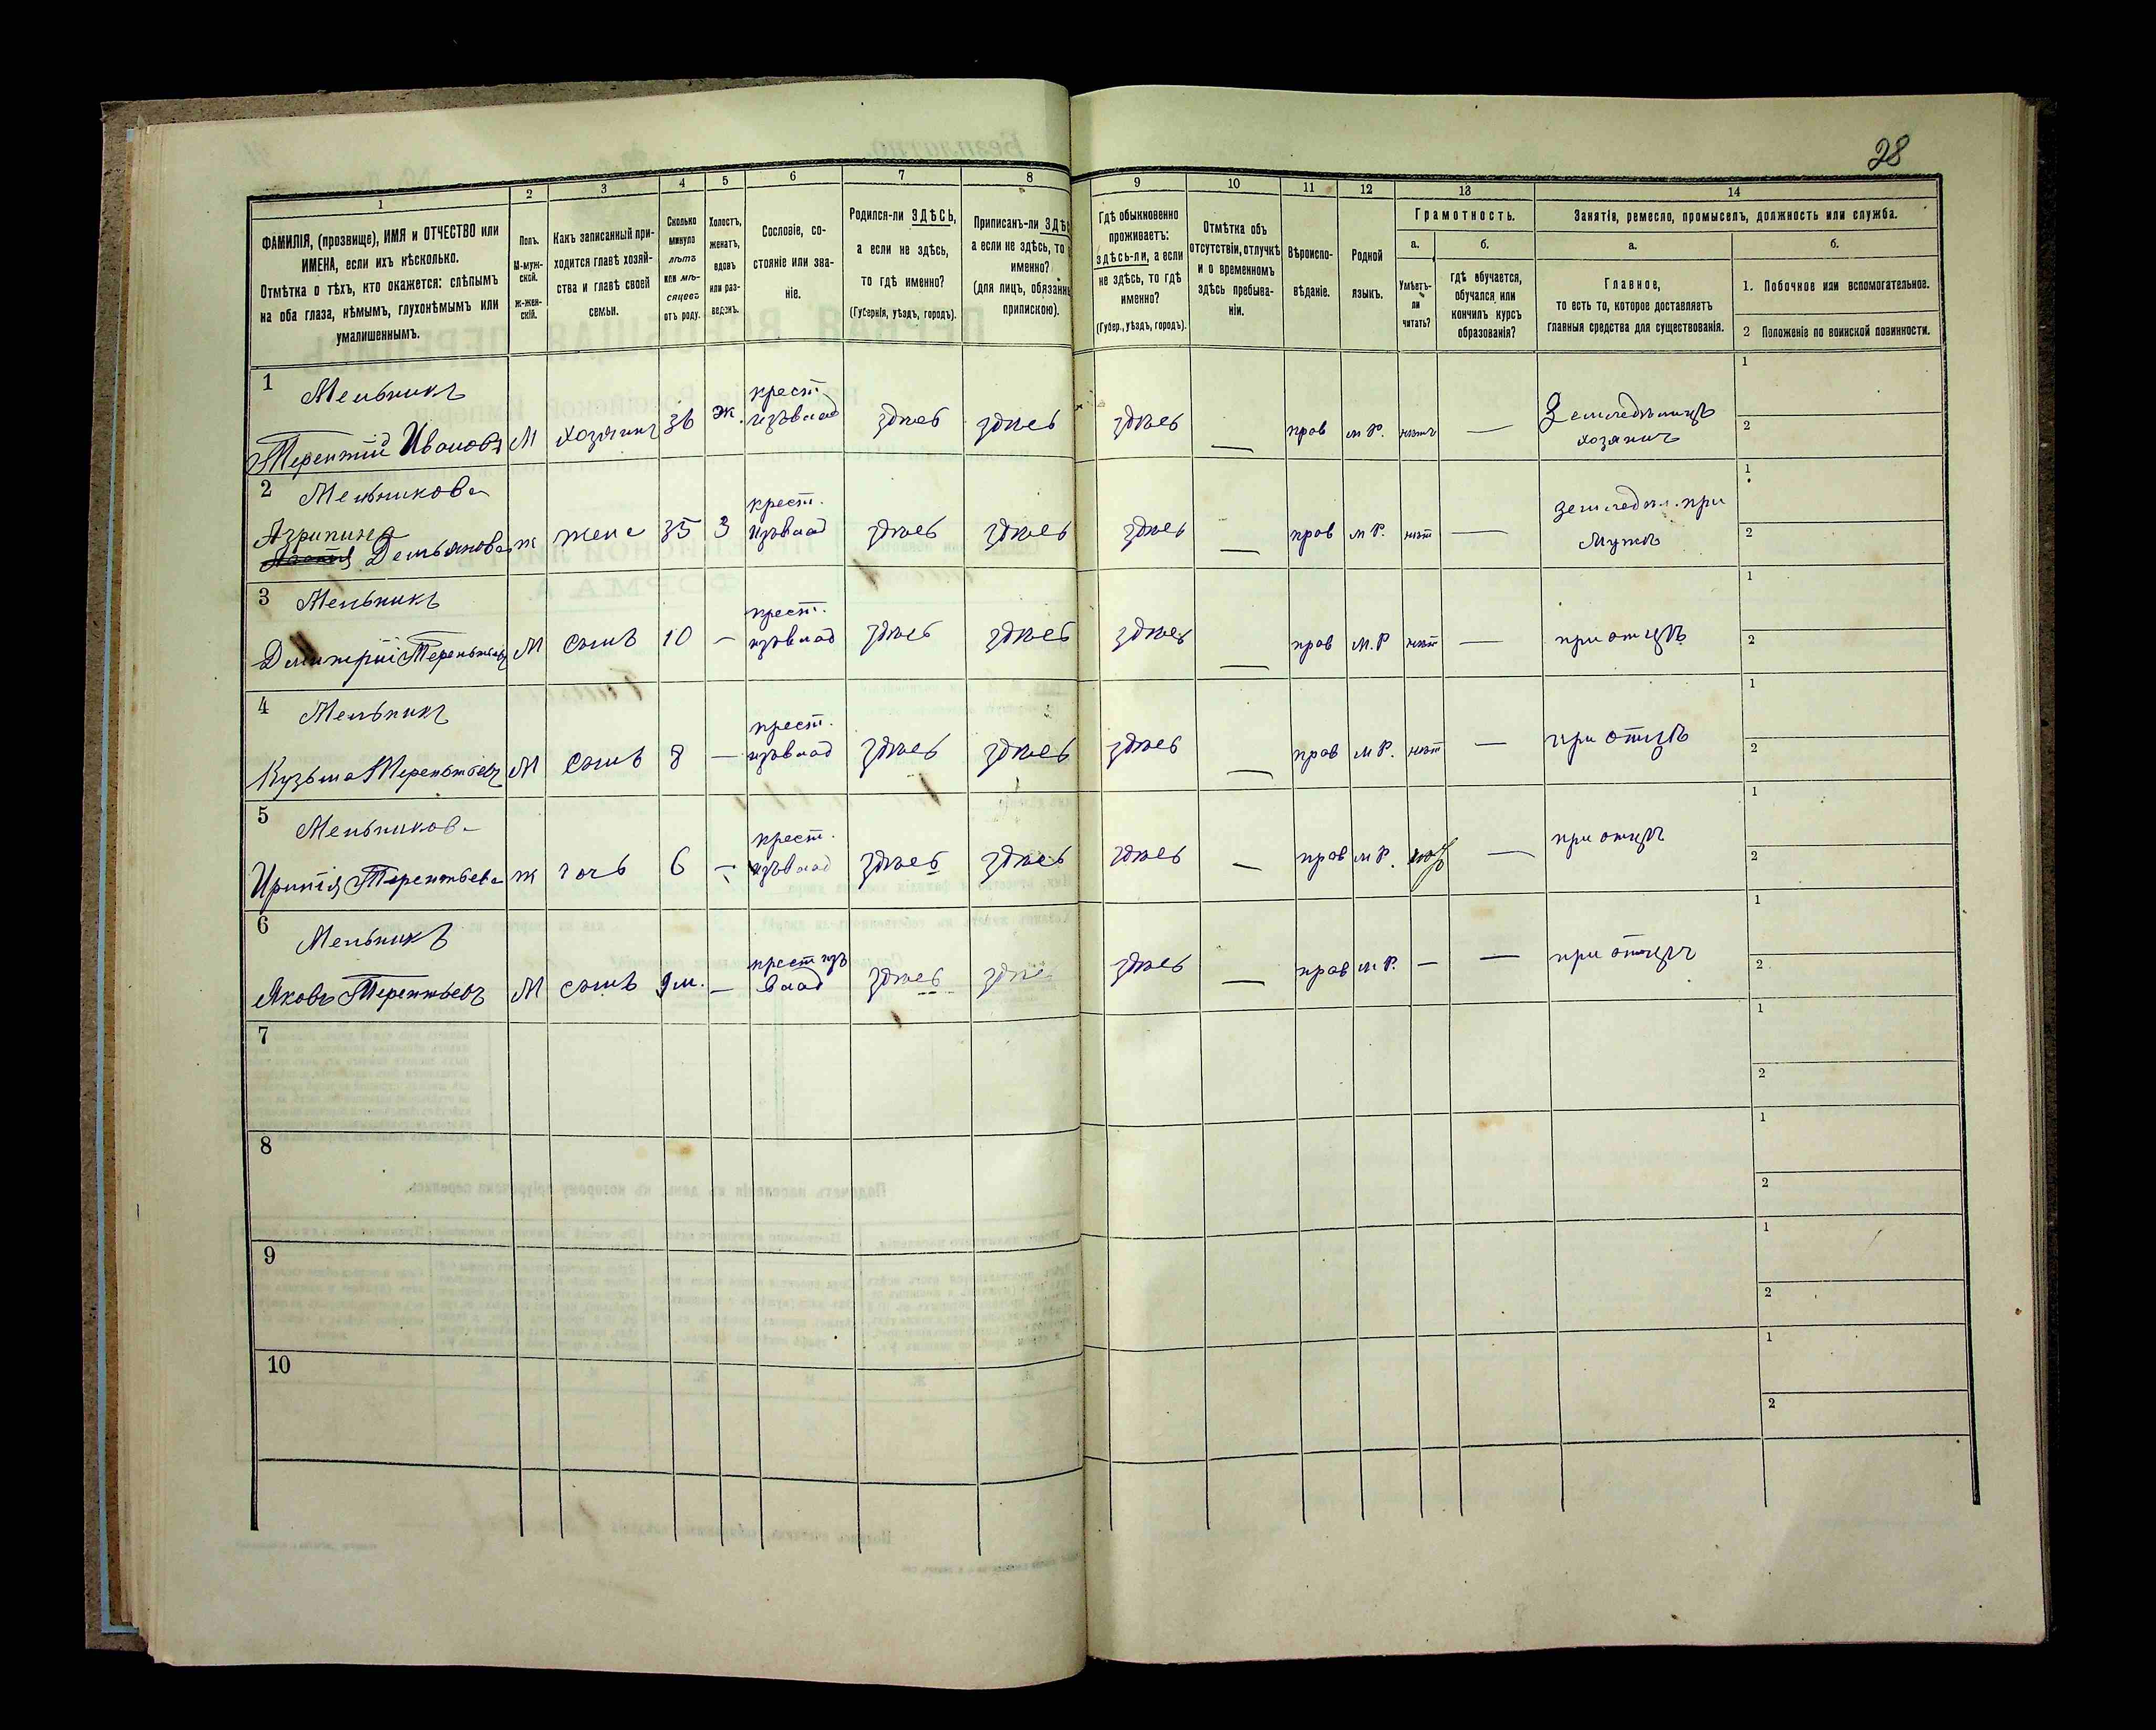 28
1 2 3 4 5 6 7 8 9 10 11 12 13 14
ФАМИЛІЯ, (прозвище), ИМЯ и ОТЧЕСТВО или
ИМЕНА, если ихъ нѣсколько.
Отмѣтка о тѣхъ, кто окажется: слѣпымъ
на оба глаза, нѣмымъ, глухонѣмымъ или
умалишеннымъ.
Полъ.
М-муж-
ской.
Ж-жен-
скій.
Какъ записанный при-
ходится главѣ хозяй-
ства и главѣ своей
семьи.
Сколько
минуло
лѣтъ
или мѣ-
сяцевъ
отъ роду.
Холостъ,
женатъ,
вдовъ
или раз-
веденъ.
Сословіе, со-
стояніе или зва-
ніе.
Родился-ли ЗДѢСЬ,
а если не здѣсь,
то гдѣ именно?
(Губернія, уѣздъ, городъ).
Приписанъ-ли
а если не здѣсь, то
именно?
(для лицъ,
припискою).
Гдѣ обыкновенно
проживаетъ:
здѣсь-ли, а если
не здѣсь, то гдѣ
именно?
(Губер., уѣздъ, городъ).
Отмѣтка объ
отсутствіи, отлучкѣ
и о временномъ
здѣсь пребыва-
ніи.
Вѣроиспо-
вѣданіе.
Родной
языкъ.
Грамотность.
а.
Умѣетъ-
ли
читать?
б.
гдѣ обучается,
обучался или
кончилъ курсъ
образованія?
Занятія, ремесло, промыселъ, должность или служба.
а.
Главное,
то есть то, которое доставляетъ
главныя средства для существованія.
б.
1. Побочное или вспомогательное.
2 Положеніе по воинской повинности.
1 Мельникъ
Терентій Ивановъ М хозяинъ 36 ж. крест. изъ влад здѣсь здѣсь здѣсь — прав м Р. нѣтъ — Земледѣлецъ хозяинъ 1 2
2 Мельникова
Агрипина Демьянова ж жена 35 З крест. изъ влад здѣсь здѣсь здѣсь — прав м Р. нѣт — земледѣл. при мужѣ 1 2
3 Мельникъ
Дмитрій Терентьевъ М сынъ 10 — крест. изъ влад здѣсь здѣсь здѣсь — прав М. Р нѣт — при отцѣ 1 2
4 Мельникъ
Кузьма Терентьевъ М сынъ 8 — крест. изъ влад здѣсь здѣсь здѣсь — прав м Р. нѣт — при отцѣ 1 2
5 Мельникова
Терентьева ж дочь 6 — крест. изъ влад здѣсь здѣсь здѣсь — прав м Р. — при отцѣ 1 2
6 Мельникъ
Яковъ Терентьевъ М сынъ 9 м. — крест изъ влад здѣсь здѣсь здѣсь — прав м Р. — — при отцѣ 1 2
7 1 2
8 1 2
9 1 2
10 1 2